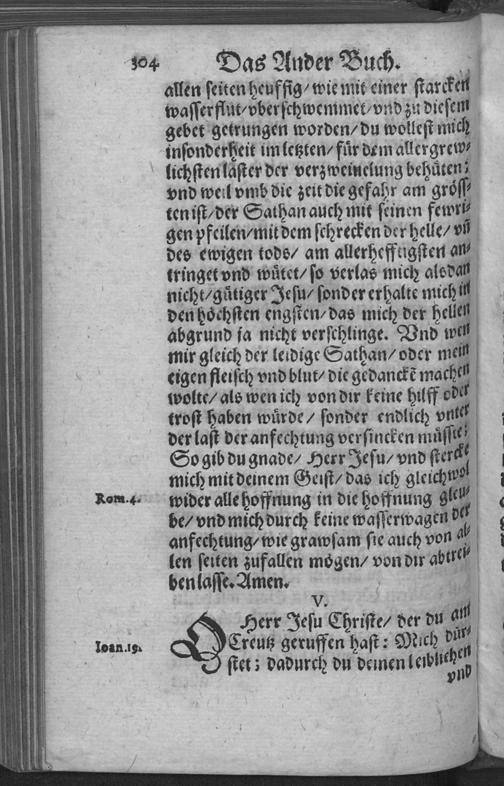 304 Das Ander Buch.
allen seiten heuffig/ wie mit einer starcken
wasserflut/ vberschwemmet/ vnd zu diesem
gebet getrungen worden/ du wollest mich
insonderheit im letzten/ für dem allergrew-
lichsten laster der verzweiuelung behüten;
vnd weil vmb die zeit die gefahr am gröss-
ten ist/ der Sathan auch mit seinen fewri-
gen pfeilen/ mit dem schrecken der helle/ vñ
des ewigen tods/ am allerhefftigsten an-
tringet vnd wütet/ so verlas mich alsdan
nicht/ gütiger Jesu/ sonder erhalte mich in
den höchsten engsten/ das mich der hellen
abgrund ja nicht verschlinge. Vnd wen
mir gleich der leidige Sathan/ oder mein
eigen fleisch vnd blut/ die gedanckē machen
wolte/ als wen ich von dir keine hilff oder
trost haben würde/ sonder endlich vnter
der last der anfechtung versincken müsste;
So gib du gnade/ Herr Jesu/ vnd stercke
mich mit deinem Geist/ das ich gleichwol
Rom.4. wider alle hoffnung in die hoffnung gleu-
be/ vnd mich durch keine wasserwagen der
anfechtung/ wie grawsam sie auch von al-
len seiten zufallen mögen/ von dir abtrei-
ben lasse. Amen.
V.
O Herr Jesu Christe/ der du am
Ioan.19. Creutz geruffen hast: Mich dür-
stet; dadurch du deinen leiblichen
vnd